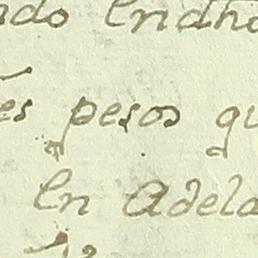 ndo En dho
es pesos qu
En Adela